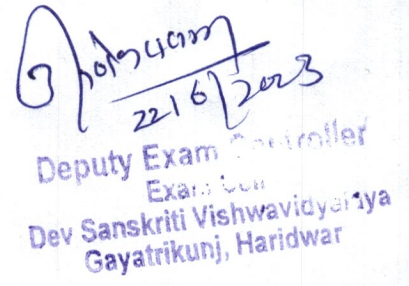 22/6/2023
Deputy Exam Controller
Exam Cell
Dev Sanskriti Vishwavidyalaya
Gayatrikunj, Haridwar